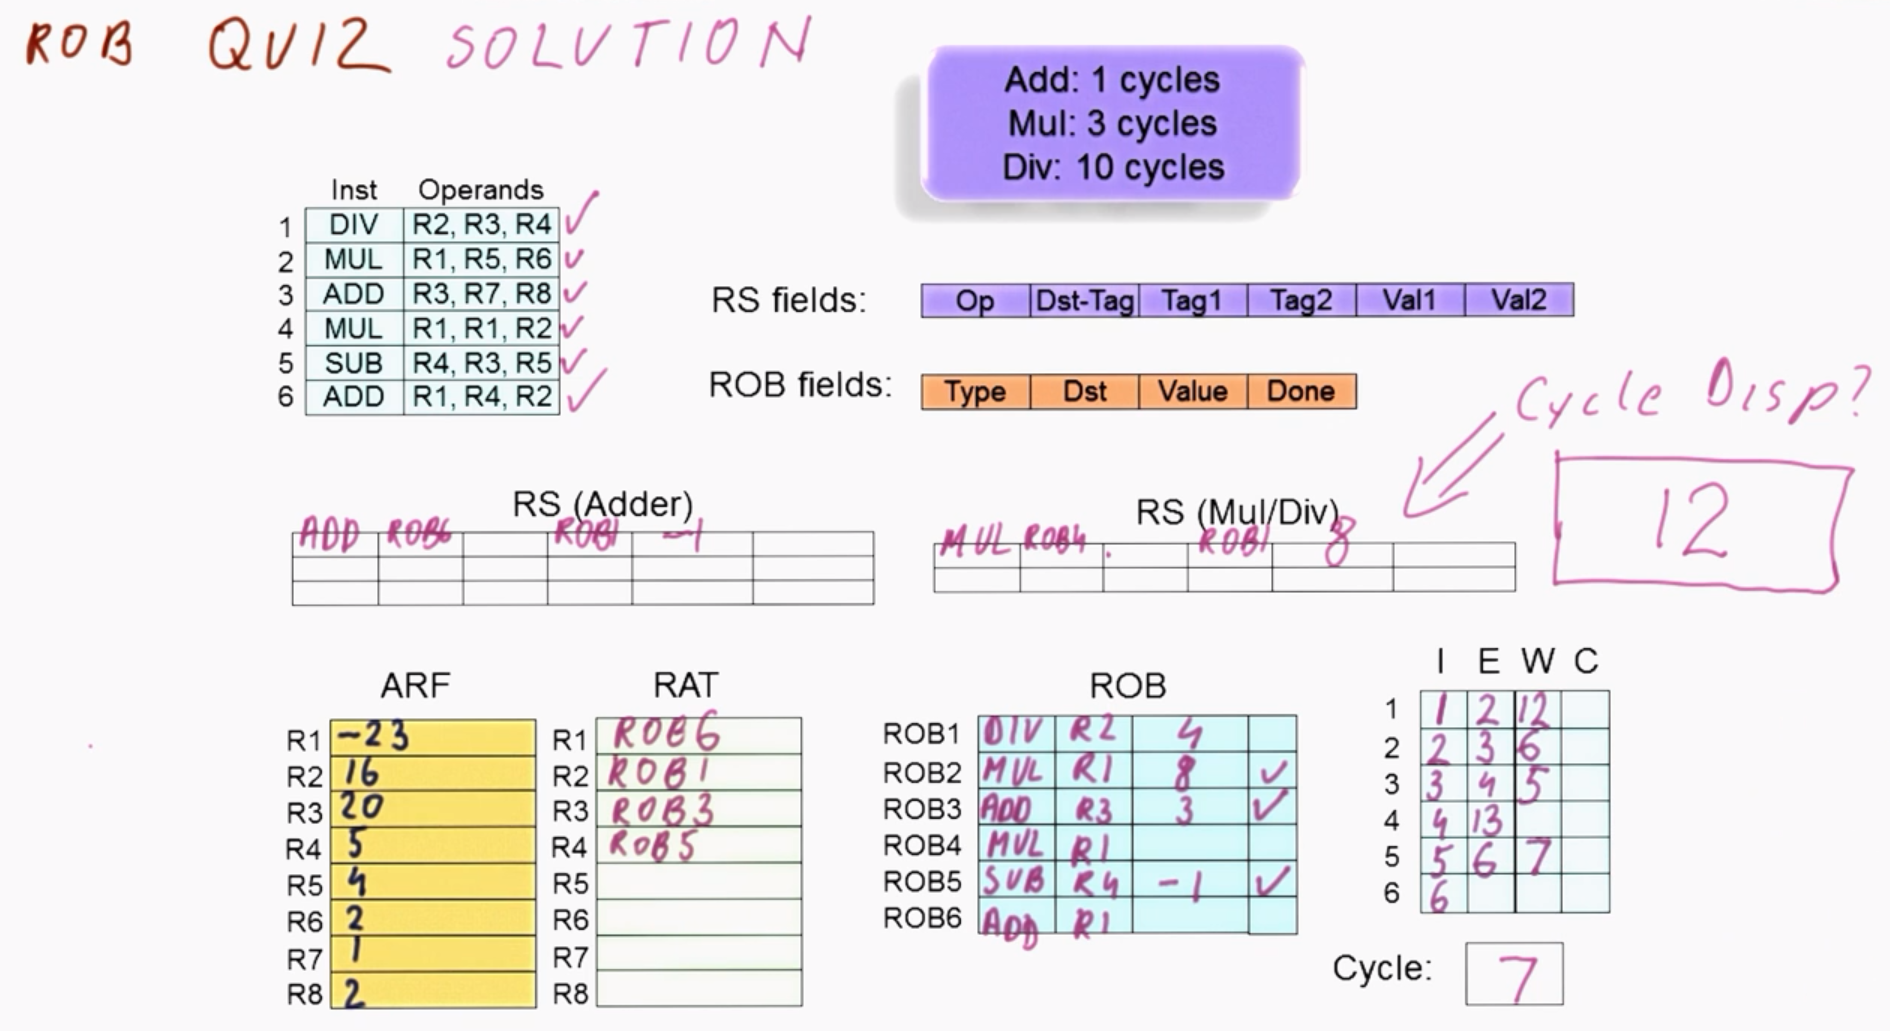 ROB QUIZ SOLUTION
Add: 1 cycles
Mul: 3 cycles
Div: 10 cycles
Inst Operands
1 DIV R2, R3, R4 ✓
2 MUL R1, R5, R6 ✓
3 ADD R3, R7, R8 ✓
4 MUL R1, R1, R2 ✓
5 SUB R4, R3, R5 ✓
6 ADD R1, R4, R2 ✓
RS fields: Op Dst-Tag Tag1 Tag2 Val1 Val2
ROB fields: Type Dst Value Done
Cycle Disp?
12
RS (Adder)
ADD ROB6 ROB1 -1
RS (Mul/Div)
MUL ROB4 ROB1 8
ARF
R1 -23
R2 16
R3 20
R4 5
R5 4
R6 2
R7 1
R8 2
RAT
R1 ROB6
R2 ROB1
R3 ROB3
R4 ROB5
R5
R6
R7
R8
ROB
ROB1 DIV R2 4
ROB2 MUL R1 8 ✓
ROB3 ADD R3 3 ✓
ROB4 MUL R1
ROB5 SUB R4 -1 ✓
ROB6 ADD R1
I E W C
1 1 2 12
2 2 3 6
3 3 4 5
4 4 13
5 5 6 7
6 6
Cycle: 7